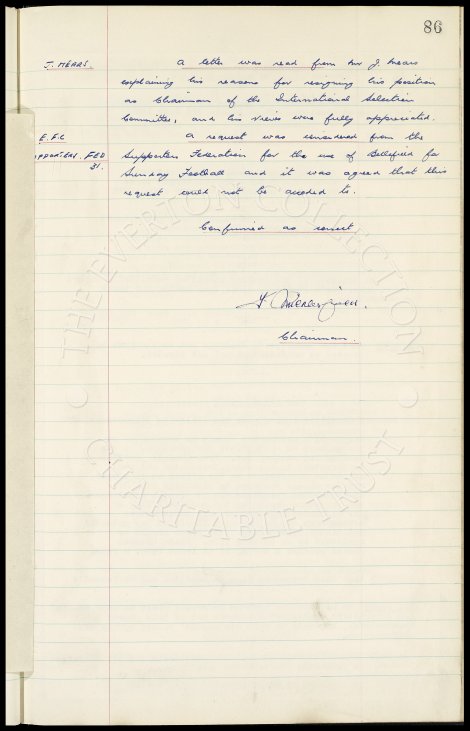 86
J. MEARS. A letter was read from Mr J. Mears
explaining his reasons for resigning his position
as Chairman of the International Selection
Committee, and his views were fully appreciated.
E.F.C A request was considered from the
SUPPORTERS FED Supporters Federation for the use of Bellefield for
31. Sunday Football and it was agreed that this
request could not be acceded to.
Confirmed as correct
Chairman.
THE EVERTON COLLECTION
CHARITABLE TRUST